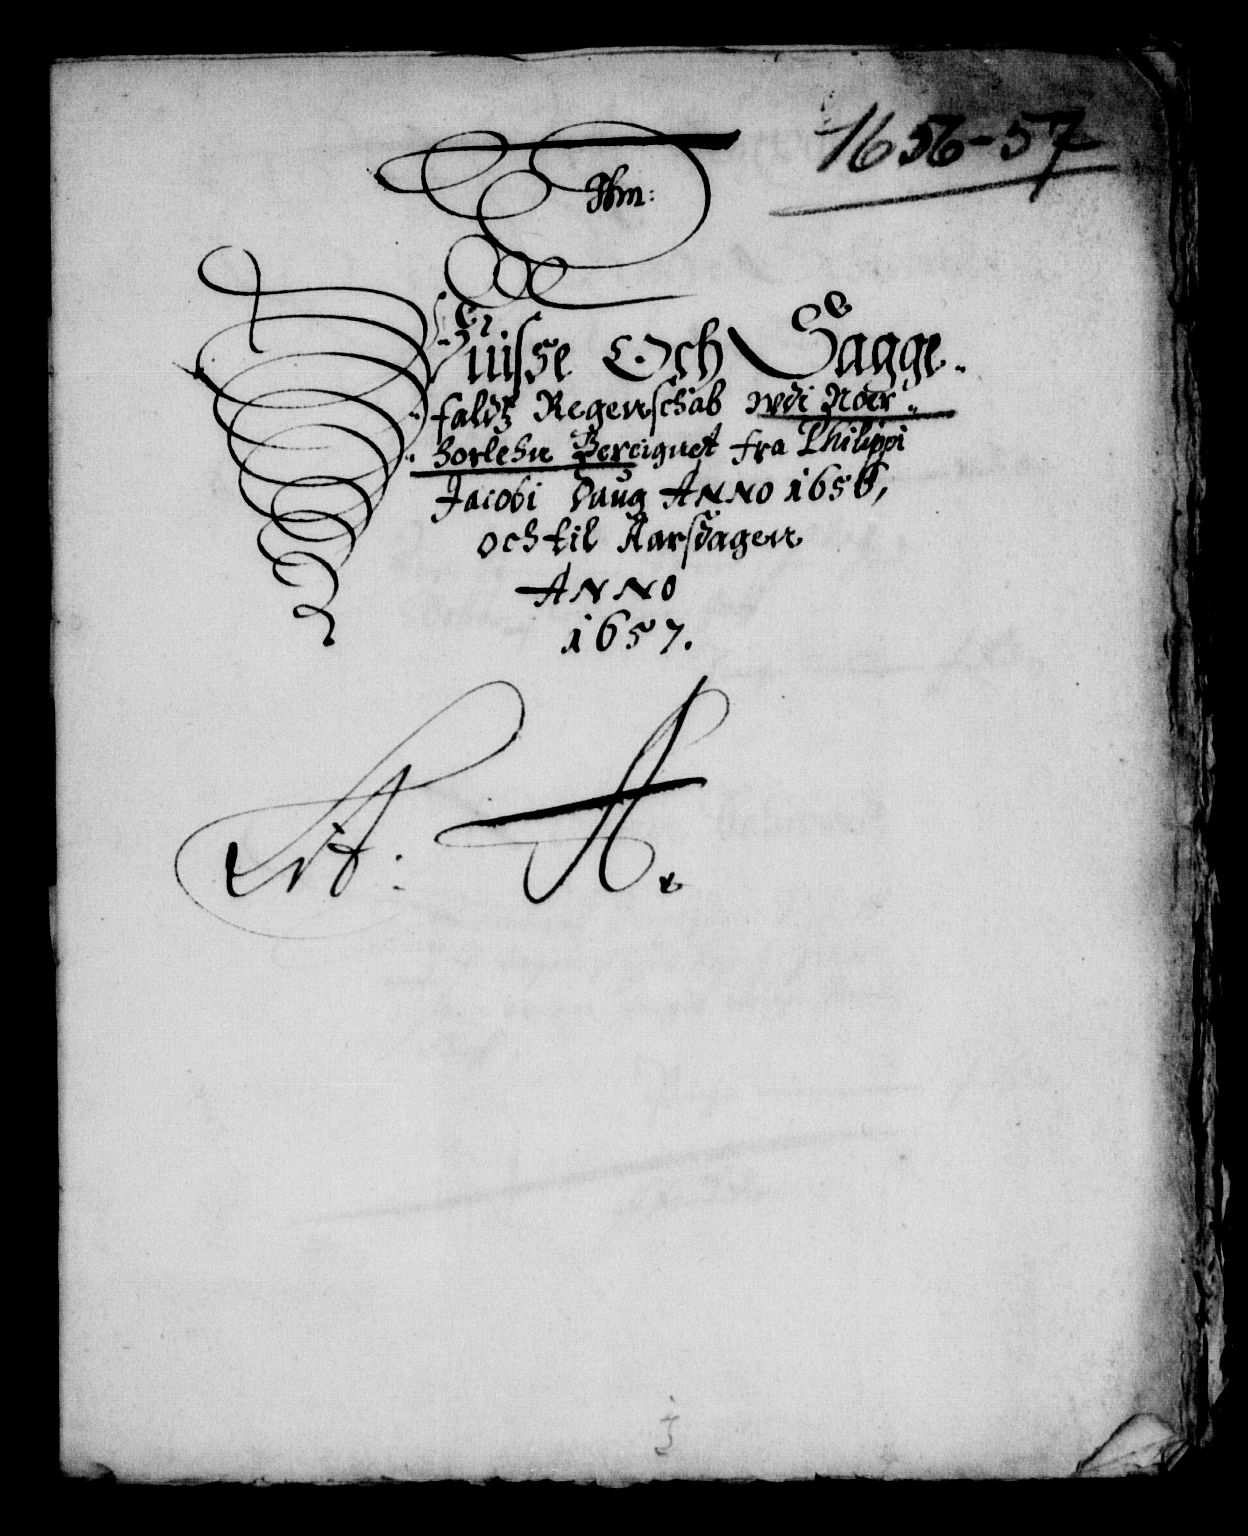 1656-57
Uisse Och Sagge-
faldz Regenschab udi Nør-
horlehn Bereignet fra Philippi
Jacobi Daug ANNO 1656,
och til Aarsdagen
ANNO
1657.
Lit: A.